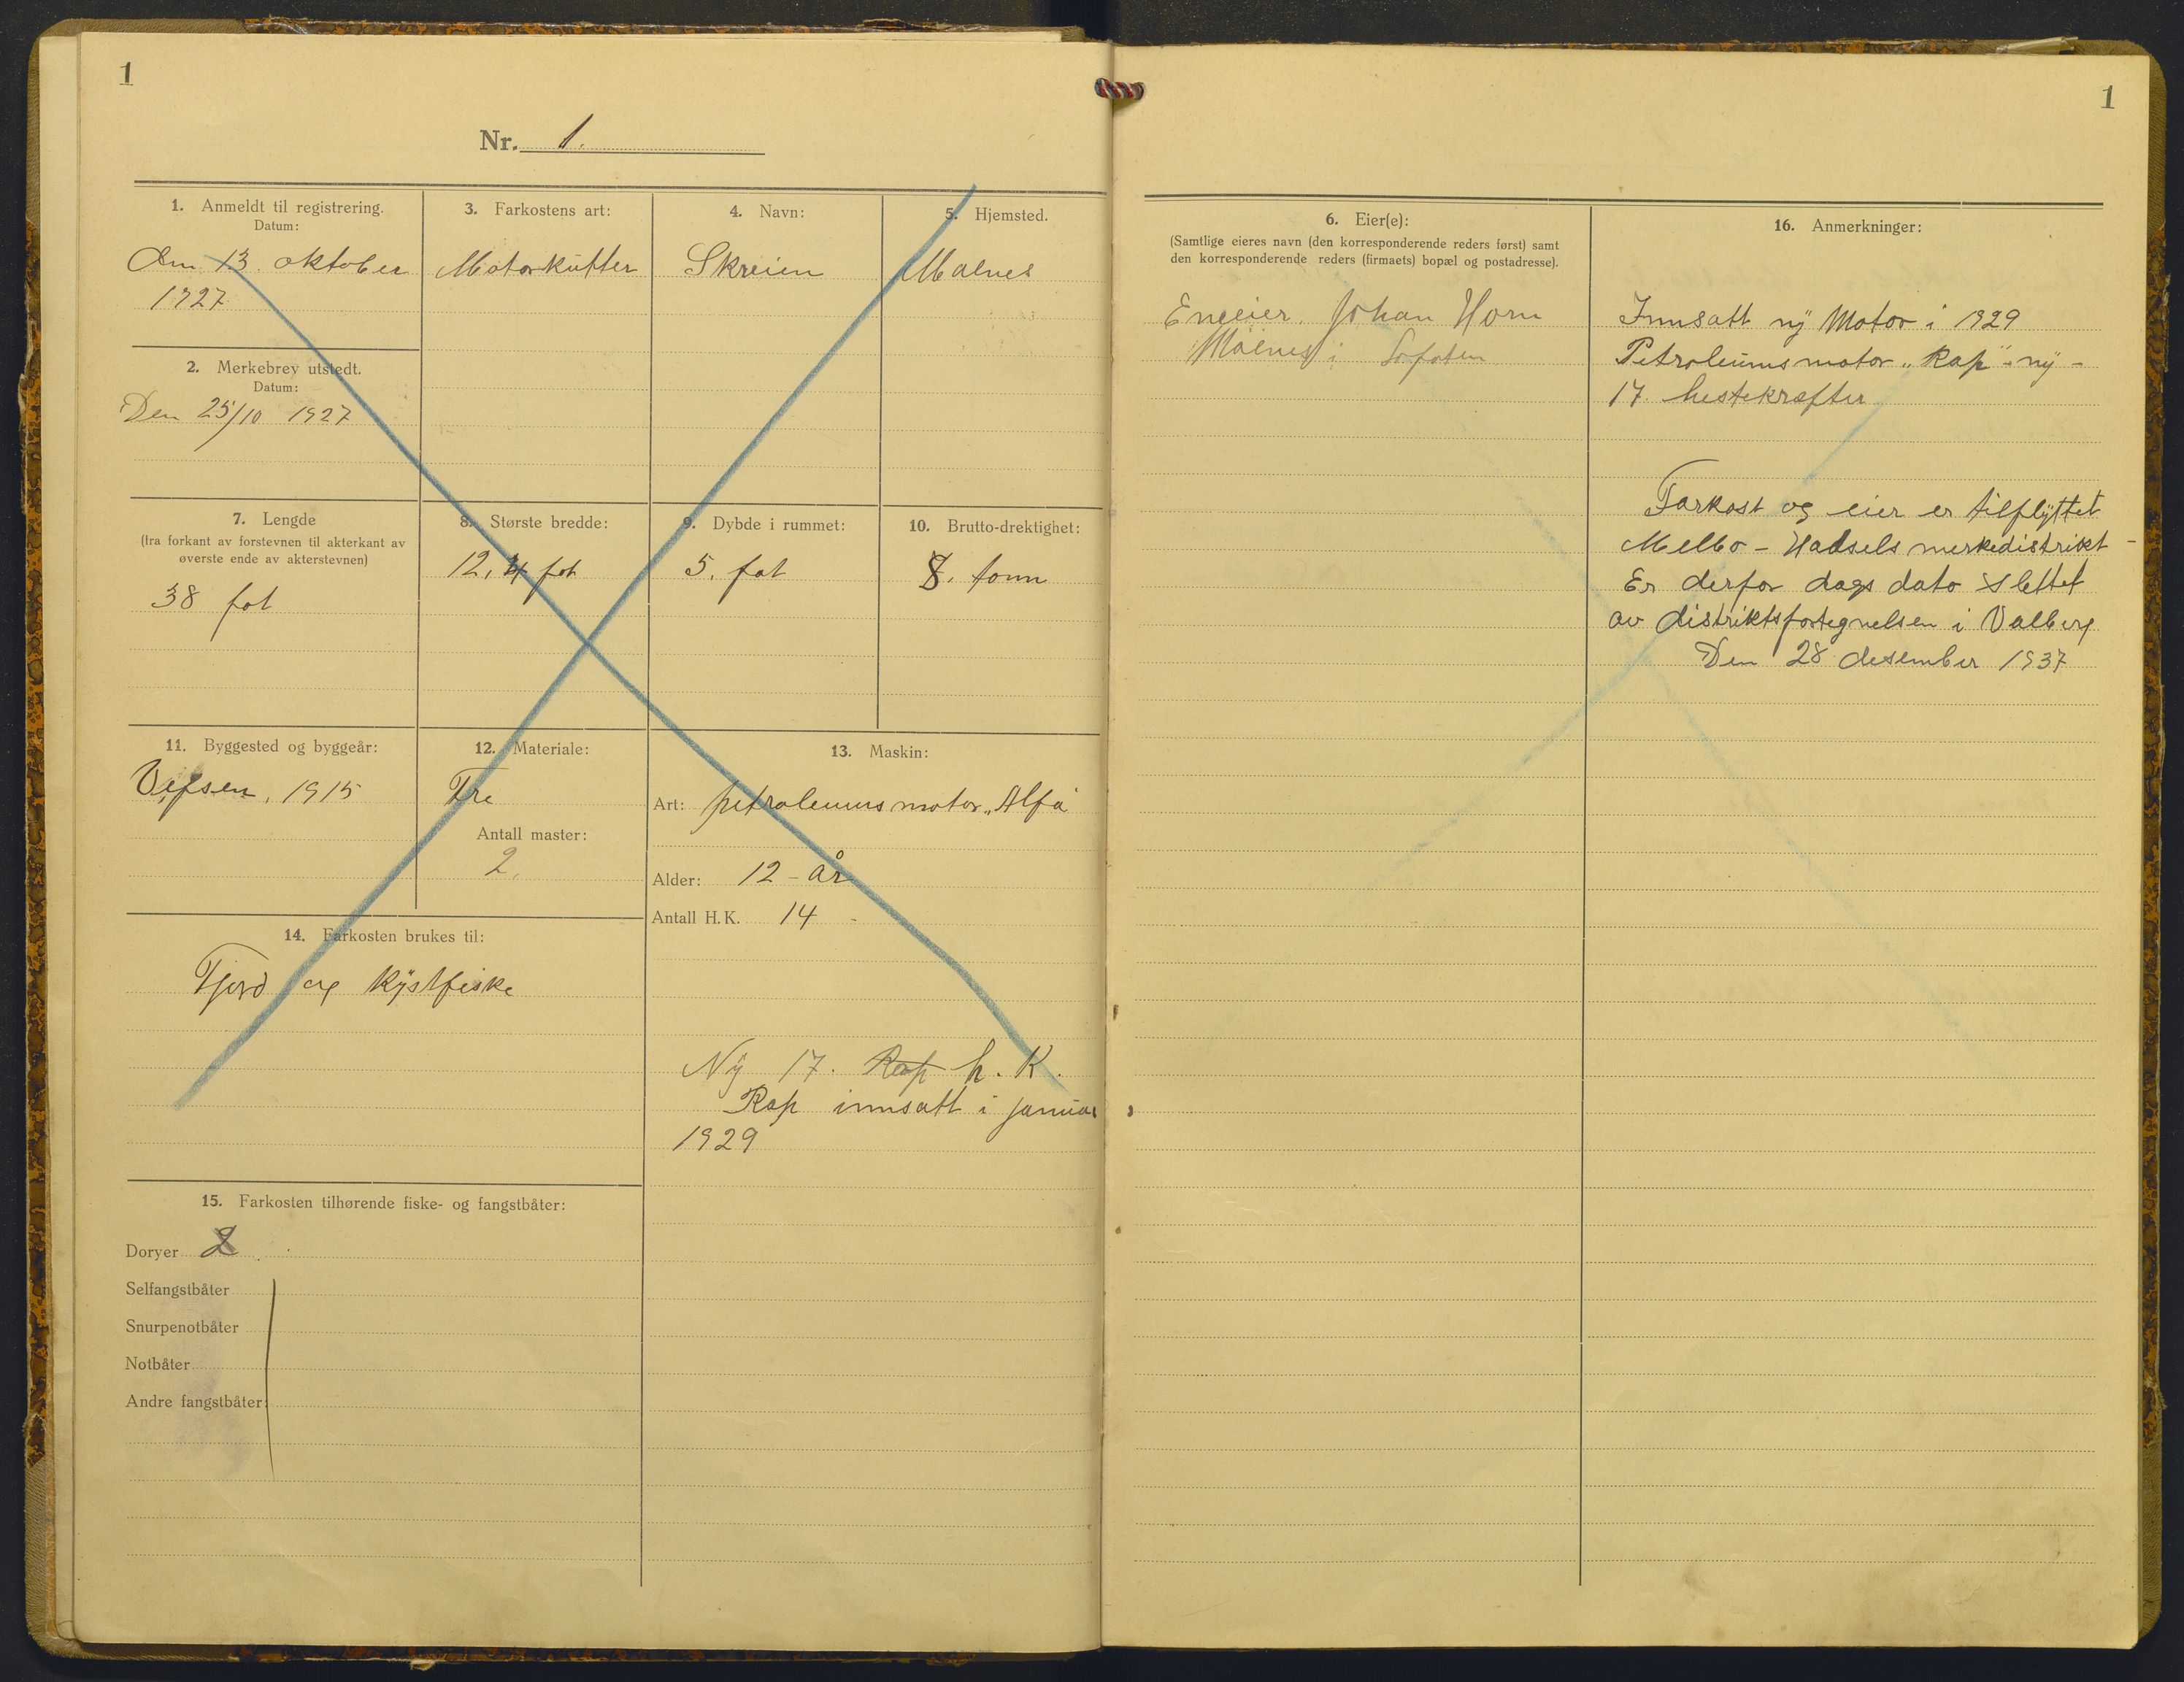 1
Nr. 1.
1. Anmeldt til registrering.
Datum:
den 13. oktober
1927
2. Merkebrev utstedt.
Datum:
Den 25/10 1927
3. Farkostens art:
Motorkutter
4. Navn:
Skreien
5. Hjemsted.
Malnes
7. Lengde
(fra forkant av forstevnen til akterkant av
øverste ende av akterstevnen)
38 fot
8. Største bredde:
12,4 fot
9. Dybde i rummet:
5. fot
10. Brutto-drektighet:
8. tonn
11. Byggested og byggeår:
Vefsen, 1915
12. Materiale:
Tre
Antall master:
2.
13. Maskin:
Art: petroleumsmotor „Alfa"
Alder: 12 - år
Antall H.K. 14 -
Ny 17. Rap h. K.
Rap innsatt i januar
1929
14. Farkosten brukes til:
Fjord og kystfiske
15. Farkosten tilhørende fiske- og fangstbåter:
Doryer 2
Selfangstbåter
Snurpenotbåter
Notbåter
Andre fangstbåter:
1
6. Eier(e):
(Samtlige eieres navn (den korresponderende reders først) samt
den korresponderende reders (firmaets) bopæl og postadresse).
Eneeier. Johan Horn
Malnes i Lofoten
16. Anmerkninger:
Innsatt ny Motor i 1929
Petroleumsmotor „Rap" - ny -
17 hestekræfter
Farkost og eier er tilflyttet
Melbo - Hadsels merkedistrikt -
Er derfor dags dato slettet
av distriktsfortegnelsen i Valberg
Den 28 desember 1937